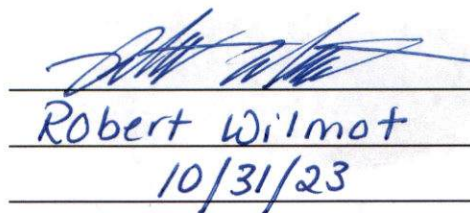 Robert Wilmot
10/31/23